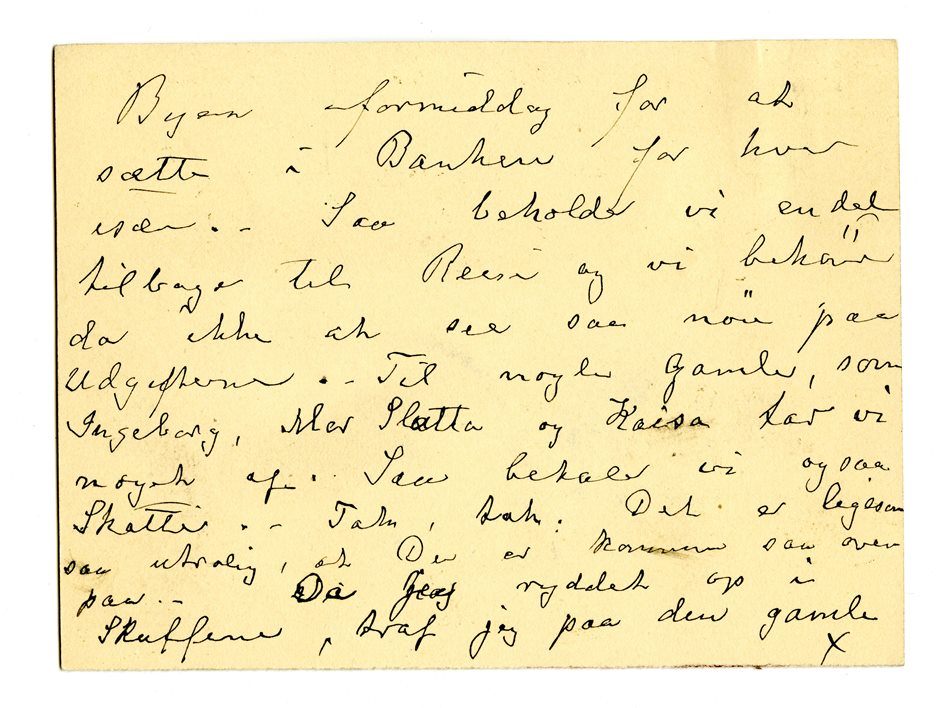 Byen iformiddag for at
sætte i Banken for hver
især. - Saa beholder vi endel
tilbage til Reise og vi behöver
da ikke at see saa nöie paa
Udgifterne. - Til nogle Gamle, som
Ingeborg, Mor Slatta og Kaisa tar vi
noget af. Saa betaler vi ogsaa
Skatten. - Tak, tak. Det er ligesom
saa utrolig, at Du er kommen saa oven
paa. - Da jeg ryddet op i
Skuffene, traf jeg paa den gamle
x